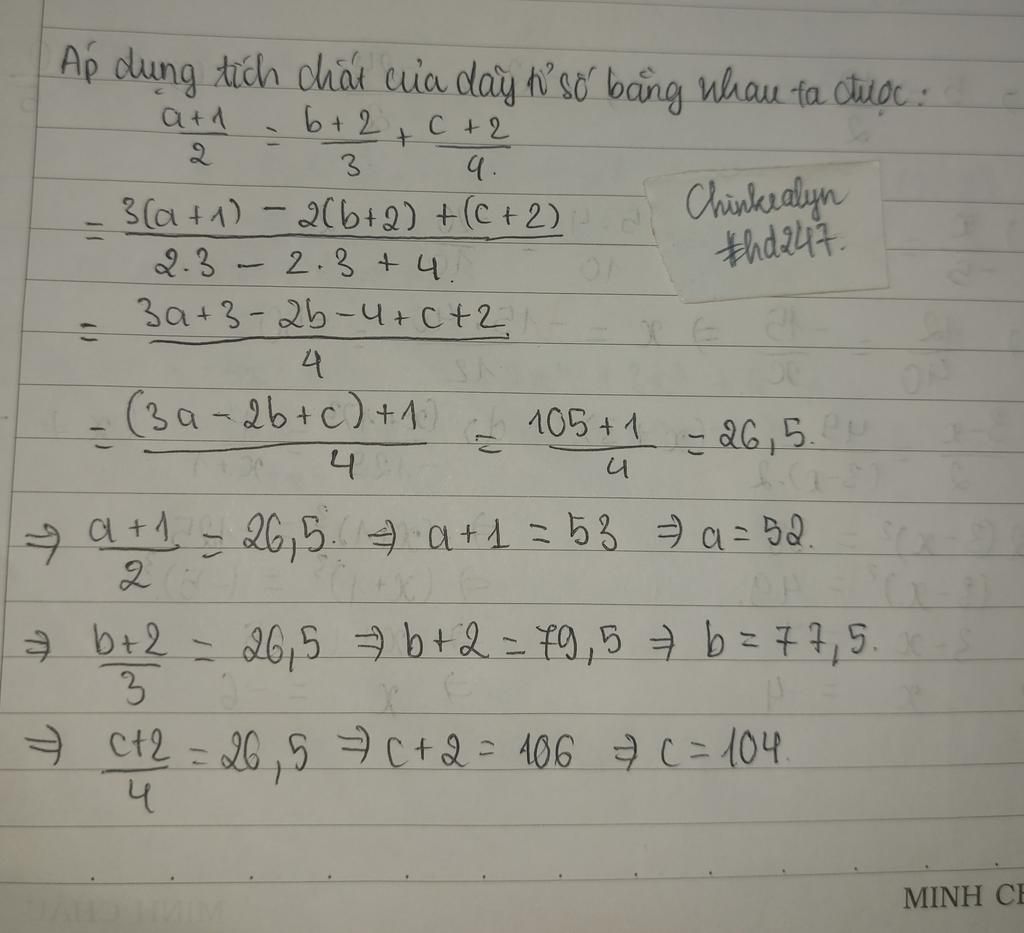 Áp dụng tích chất của dãy tỉ số bằng nhau ta được:
a+1/2 = b+2/3 + c+2/4.
= 3(a+1) - 2(b+2) + (c+2) / 2.3 - 2.3 + 4.
= 3a+3-2b-4+c+2 / 4
= (3a-2b+c)+1 / 4 = 105+1 / 4 = 26,5.
⇒ a+1/2 = 26,5. ⇒ a+1 = 53 ⇒ a = 52.
⇒ b+2/3 = 26,5 ⇒ b+2 = 79,5 ⇒ b = 77,5.
⇒ c+2/4 = 26,5 ⇒ c+2 = 106 ⇒ c = 104.
Chinkealyn
#hd247.
MINH